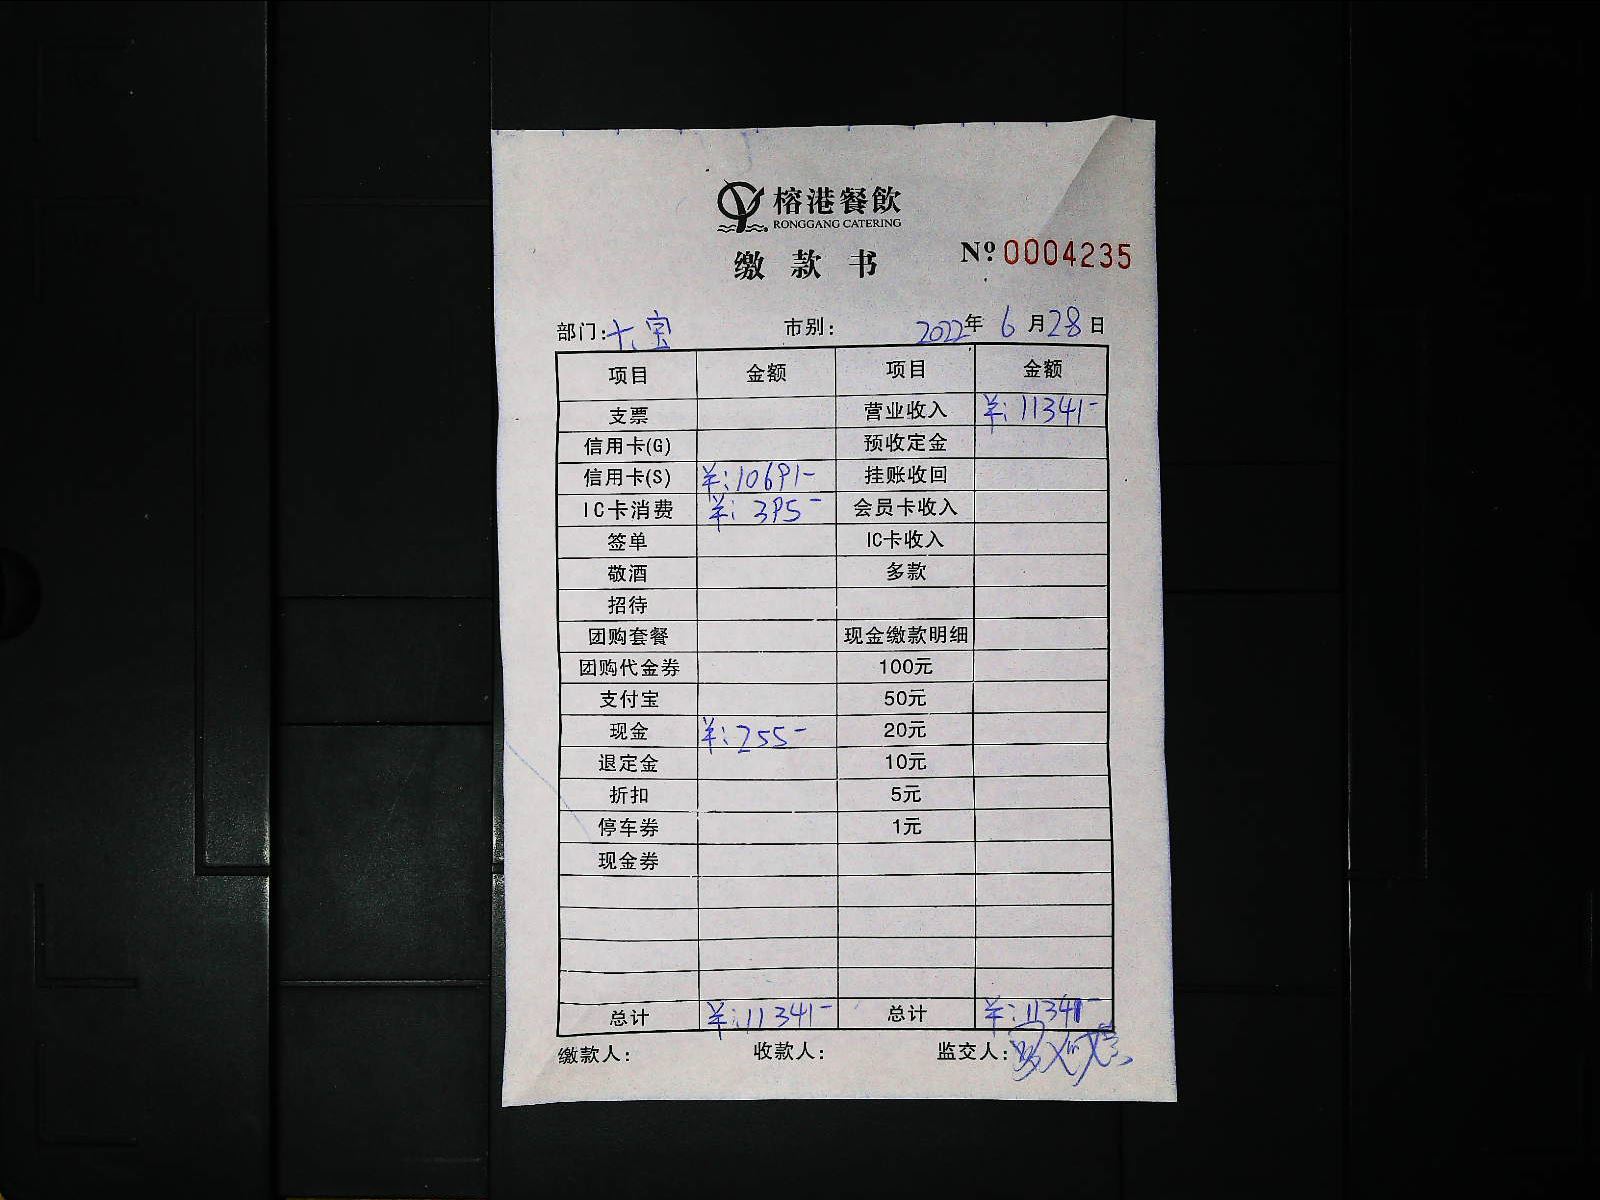 榕港餐飲
RONGGANG CATERING
缴款书 Nº 0004235
部门: 市别: 2022年6月28日
项目 金额 项目 金额
支票 营业收入 ¥:11341-
信用卡(G) 预收定金
信用卡(S) ¥:10691- 挂账收回
IC卡消费 ¥:395- 会员卡收入
签单 IC卡收入
敬酒 多款
招待
团购套餐 现金缴款明细
团购代金券 100元
支付宝 50元
现金 ¥:255- 20元
退定金 10元
折扣 5元
停车券 1元
现金券
总计 ¥:11341- 总计 ¥:11341-
缴款人: 收款人: 监交人: